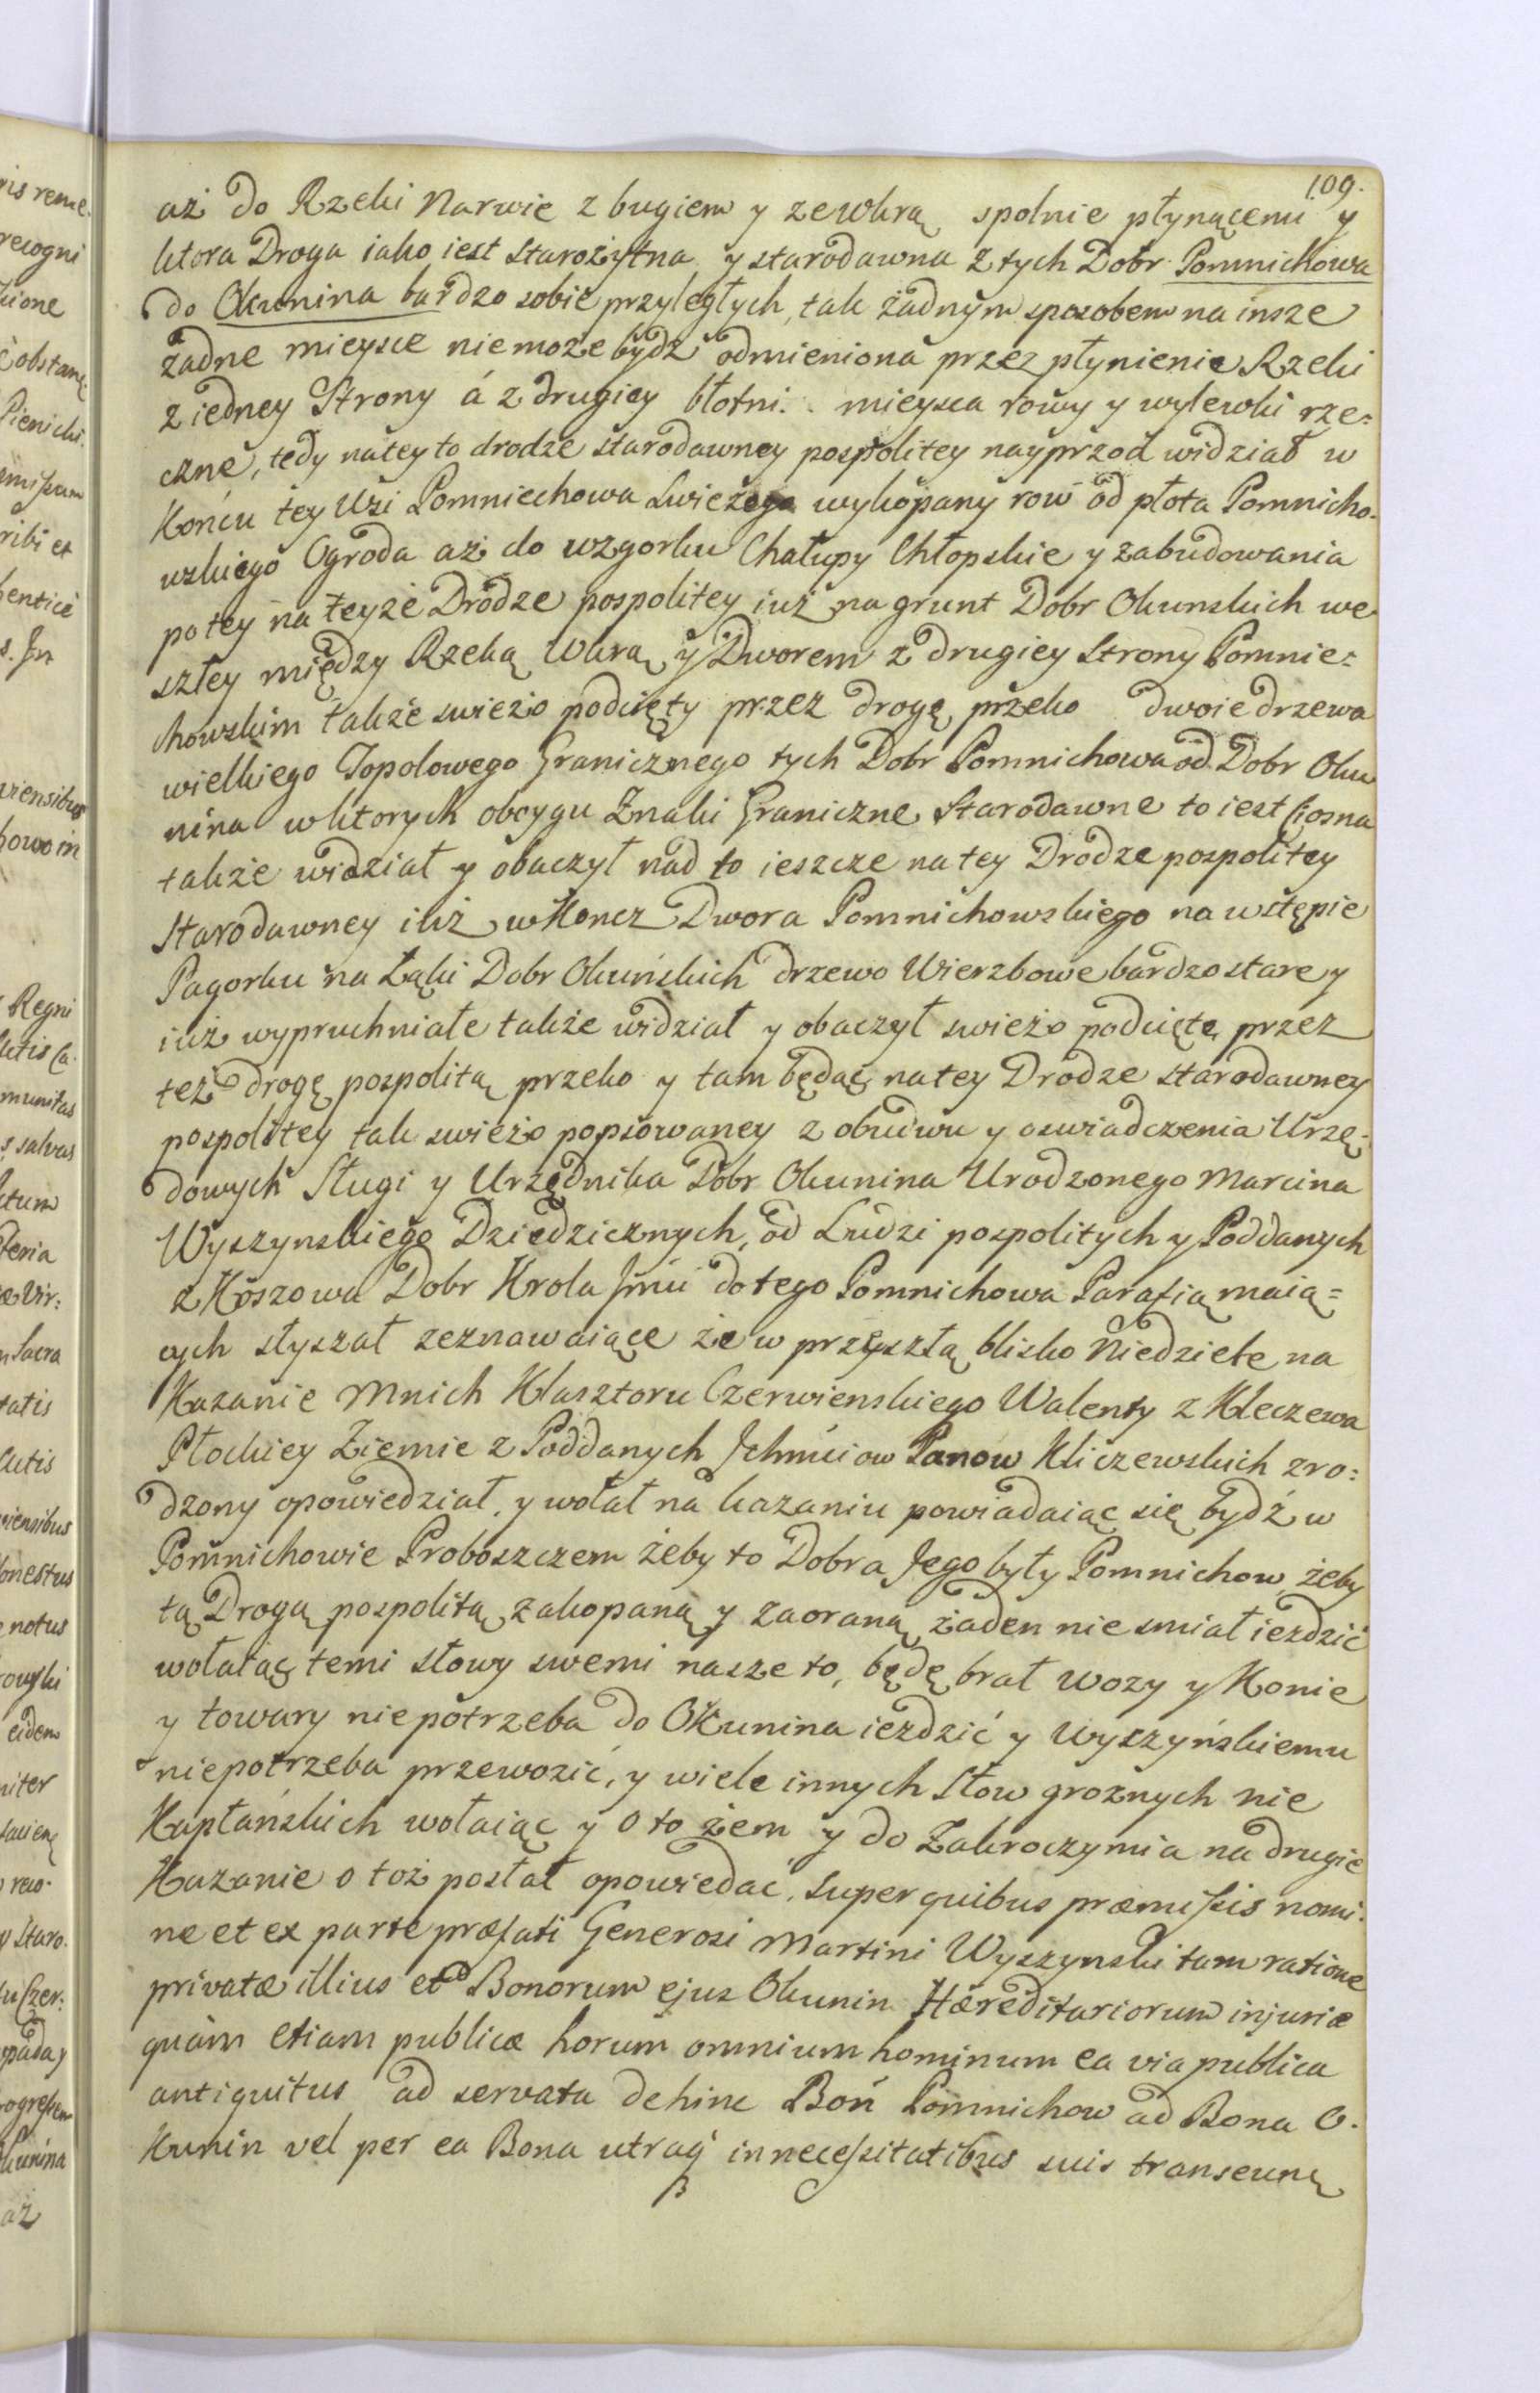 109.
aż do Rzeki Narwie z bugiem y zewkrą spolnie płynącemi y
ktora Droga iako iest starożytna y starodawna z tych Dobr Pomnichowa
do Okunina bardzo sobie przyległych, tak żadnym sposobem na insze
żadne mieysce niemoże bydź odmieniona przez płynienie Rzeki
z iedney Strony á z drugiey błotni. . mieysca rowy y wylewki rze=
czne, tedy na tey to drodze starodawney pospolitey nayprzod widział w
Końcu tey Wsi Pomniechowa Swieżego wykopany row od płota Pomnicho-
wskiego Ogroda aż do wzgorku Chałupy Chłopskie y zabudowania
po tey na teyże Drodze pospolitey iuż na grunt Dobr Okunskich we
szłey między Rzeką Wkrą y Dworem z drugiey Strony Pomnie=
chowskim także swieżo podcięty przez drogę przeko dwoie drzewa
wielkiego Topolowego Granicznego tych Dobr Pomnichowa od Dobr Oku
nina w ktorych obcygu Znaki Graniczne Starodawne to iest Ciosna
także widział y obaczył nad to ieszcze na tey Drodze pospolitey
Starodawney iuż w Koncz Dwora Pomnichowskiego na wstępie
Pagorku na Łąki Dobr Okuńskich drzewo Wierzbowe bardzo stare y
iuż wypruchniałe także widział y obaczył swieżo podcięte przez
też drogę pospolitą przeko y tam będąc na tey Drodze starodawney
pospolitey tak swieżo popsowaney z obuwu y oswiadczenia Urzę-
dowych Sługi y Urzędnika Dobr Okunina Urodzonego Marcina
Wyszynskiego Dziedzicznych, od Ludzi pospolitych y Poddanych
z Koszowa Dobr Krola Jmci do tego Pomnichowa Parafią maią=
cych słyszał zeznawaiące że w przyszłą blisko Niedziele na
Kazanie Mnich Klasztoru Czerwienskiego Walenty z Kleczewa
Płockiey Ziemie z Poddanych Jchmciow Panow Kliczewskich zro=
dzony opowiedział, y wołał na kazaniu powiadaiąc się bydź w
Pomnichowie Proboszczem żeby to Dobra Jego były Pomnichow, żeby
tą Drogą pospolitą zakopaną y zaoraną żaden nie smiał iezdzić
wołaiąc temi słowy swemi nasze to, będę brał wozy y Konie
y towary niepotrzeba do Okunina iezdzić y Wyszyńskiemu
niepotrzeba przewozić, y wiele innych Słow groznych nie
Kapłańskich wołaiąc y o to żem y do Zakroczymia na drugie
Kazanie o toż posłał opowiedać. Super quibus præmissis nomi-
ne et ex parte præfati Generosi Martini Wyszynski tam ratione
privatæ illius et Bonorum ejus Okunin Hæreditariorum injuriæ
quàm etiam publicæ horum omnium hominum ea via publica
antiquitus ad servata dehinc Boń Pomnichow ad Bona O-
kunin vel per ea Bona utraq́ in necessitatibus suis transeunę